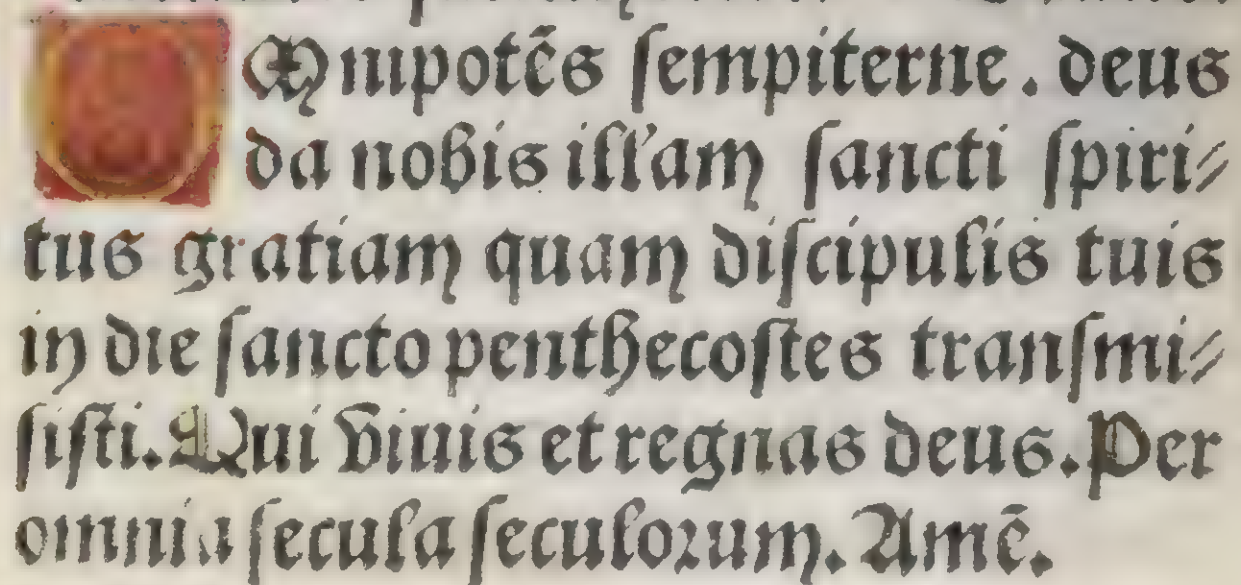 OMnipotẽs ſempiterne. deus
da nobis illam ſancti ſpiri⸗
tus gratiam quam diſcipulis tuis
in die ſancto penthecoſtes tranſmi⸗
ſiſti. Qui viuis et regnas deus. Per
omnia ſecula ſeculoꝛum. Amẽ.